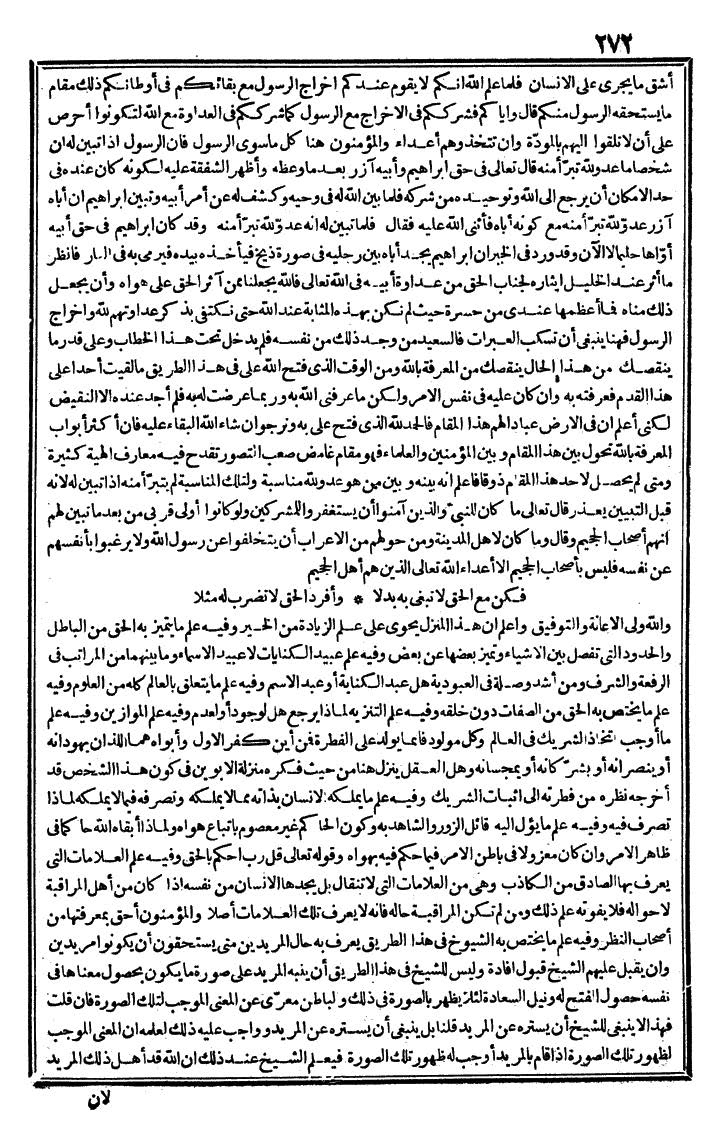 ٢٧٢
أشق ما يجرى على الانسان فلما علم الله انكم لا يقوم عندكم اخراج الرسول مع بقائكم فى أوطانكم ذلك مقام
ما يستحقه الرسول منكم قال واياكم فشرككم فى الاخراج مع الرسول كما شرككم فى العداوة مع الله لتكونوا أحرص
على أن لا تلقوا اليهم بالمودّة وان تتخذوهم أعداء والمؤمنون هنا كل ماسوى الرسول فان الرسول اذا تبين له ان
شخصا ما عدوّ لله تبرّأ منه قال تعالى فى حق ابراهيم وأبيه آزر بعد ما وعظه وأظهر الشفقة عليه لكونه كان عنده فى
حد الامكان أن يرجع الى الله وتوحيده من شركه فلما بين الله له فى وحيه وكشف له عن أمر أبيه وتبين ابراهيم ان أباه
آزر عدوّ لله تبرّأ منه مع كونه أباه فأثنى الله عليه فقال فلما تبين له انه عدوّ لله تبرّأ منه وقد كان ابراهيم فى حق أبيه
أوّاها حليما الا الآن وقد ورد فى الخبر ان ابراهيم يجد أباه بين رجليه فى صورة ذيخ فيأخذه بيده فيرمى به فى النار فانظر
ما أثر عند الخليل ايثاره لجناب الحق من عداوة أبيه فى الله تعالى فالله يجعلنا ممن آثر الحق على هواه وأن يجعل
ذلك مناه فما أعظمها عندى من حسرة حيث لم نكن بهذه المثابة عند الله حتى نكتفى بذكر عداوتهم لله واخراج
الرسول فهنا ينبغى أن تسكب العبرات فالسعيد من وجد ذلك من نفسه فلم يدخل تحت هذا الخطاب وعلى قدر ما
ينقصك من هذا الحال ينقصك من المعرفة بالله ومن الوقت الذى فتح الله على فى هذا الطريق ما لقيت أحدا على
هذا القدم فعرفته به وان كان عليه فى نفس الامر ولكن ما عرفنى الله به وربما عرضت له به فلم أجد عنده الا النقيض
لكنى أعلم ان فى الارض عبادا لهم هذا المقام فالحمد لله الذى فتح على به ونرجو ان شاء الله البقاء عليه فان أكثر أبواب
المعرفة بالله تحول بين هذا المقام وبين المؤمنين والعلماء فهو مقام غامض صعب التصور تقدح فيه معارف الهية كثيرة
ومتى لم يحصل لاحد هذا المقام ذوقا فاعلم انه بينه وبين من هو عدو لله مناسبة ولتلك المناسبة لم يتبرّأ منه اذا تبين له لانه
قبل التبيين يعذر قال تعالى ما كان للنبىّ والذين آمنوا أن يستغفروا للمشركين ولو كانوا أولى قربى من بعد ما تبين لهم
انهم أصحاب الجحيم وقال وما كان لاهل المدينة ومن حولهم من الاعراب أن يتخلفوا عن رسول الله ولا يرغبوا بأنفسهم
عن نفسه فليس بأصحاب الجحيم الا أعداء الله تعالى الذين هم أهل الجحيم
فكن مع الحق لا تبغى به بدلا * وأفرد الحق لا تضرب له مثلا
والله ولى الاعانة والتوفيق واعلم ان هذا المنزل يحوى على علم الزيادة من الخير وفيه علم ما يتميز به الحق من الباطل
والحدود التى تفصل بين الاشياء وتميز بعضها عن بعض وفيه علم عبيد الكنايات لا عبيد الاسماء وما بينهما من المراتب فى
الرفعة والشرف ومن أشد وصلة فى العبودية هل عبد الكناية أو عبد الاسم وفيه علم ما يتعلق بالعالم كله من العلوم وفيه
علم ما يختص به الحق من الصفات دون خلقه وفيه علم التنزيه لماذا يرجع هل لوجود أو لعدم وفيه علم الموازين وفيه علم
ما أوجب اتخاذ الشريك فى العالم وكل مولود فانما يولد على الفطرة فمن أين كفر الاول وأبواه هما اللذان يهودانه
أو ينصرانه أو يشركانه أو يمجسانه وهل العقل ينزل هنا من حيث فكره منزلة الابوين فى كون هذا الشخص قد
أخرجه نظره من فطرته الى اثبات الشريك وفيه علم ما يملكه الانسان بذاته مما لا يملكه وتصرفه فيما لا يملكه لماذا
تصرف فيه وفيه علم ما يؤل اليه قائل الزور والشاهد به وكون الحاكم غير معصوم باتباع هواه ولماذا أبقاه الله حاكما فى
ظاهر الامر وان كان معزولا فى باطن الامر فيما حكم فيه بهواه وقوله تعالى قل رب احكم بالحق وفيه علم العلامات التى
يعرف بها الصادق من الكاذب وهى من العلامات التى لا تنقال بل يجدها الانسان من نفسه اذا كان من أهل المراقبة
لاحواله فلا يفوته علم ذلك ومن لم تكن المراقبة حاله فانه لا يعرف تلك العلامات أصلا والمؤمنون أحق بمعرفتها من
أصحاب النظر وفيه علم ما يختص به الشيوخ فى هذا الطريق يعرف به حال المريدين متى يستحقون أن يكونوا مريدين
وان يقبل عليهم الشيخ قبول افادة وليس للشيخ فى هذا الطريق أن ينبه المريد على صورة ما يكون بحصول معناها فى
نفسه حصول الفتح له ونيل السعادة لئلا يظهر بالصورة فى ذلك والباطن معرّى عن المعنى الموجب لتلك الصورة فان قلت
فهذا لا ينبغى للشيخ أن يستره عن المريد قلنا بل ينبغى أن يستره عن المريد وواجب عليه ذلك لعلمه ان المعنى الموجب
لظهور تلك الصورة اذا قام بالمريد أوجب له ظهور تلك الصورة فيعلم الشيخ عند ذلك ان الله قد أهل ذلك المريد
لان